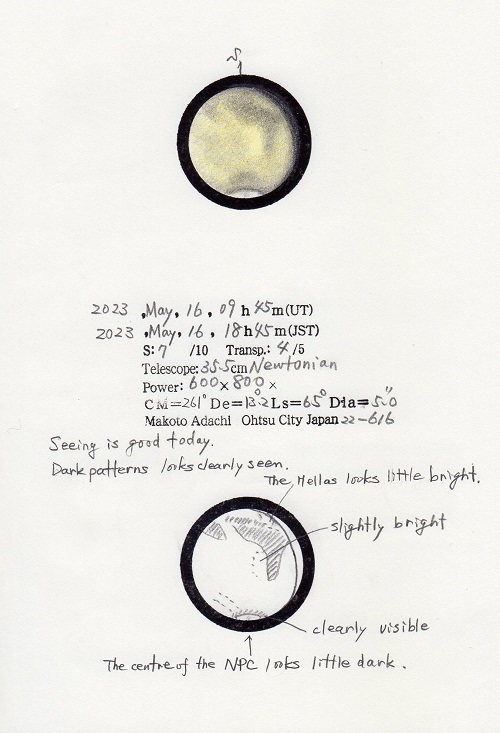 S
2023 ,May, 16, 09 h 45 m(UT)
2023 ,May, 16, 18 h 45 m(JST)
S: 7 /10 Transp.: 4 /5
Telescope: 35.5cm Newtonian
Power: 600× 800 ×
CM=261° De=13.2° Ls=65° Dia=5.0"
Makoto Adachi Ohtsu City Japan 22-616
Seeing is good today.
Dark patterns looks clearly seen.
The Hellas looks little bright.
slightly bright
clearly visible
The centre of the NPC looks little dark.